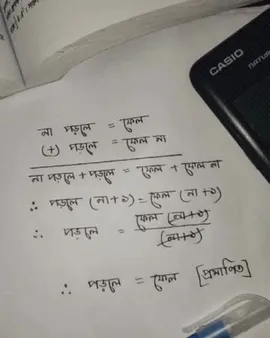 CASIO
না পড়লে = ফেল
(+) পড়লে = ফেল না
না পড়লে + পড়লে = ফেল + ফেল না
∴ পড়লে (না+১) = ফেল (না+১)
∴ পড়লে = ফেল (না+১) / (না+১)
∴ পড়লে = ফেল [প্রমাণিত]